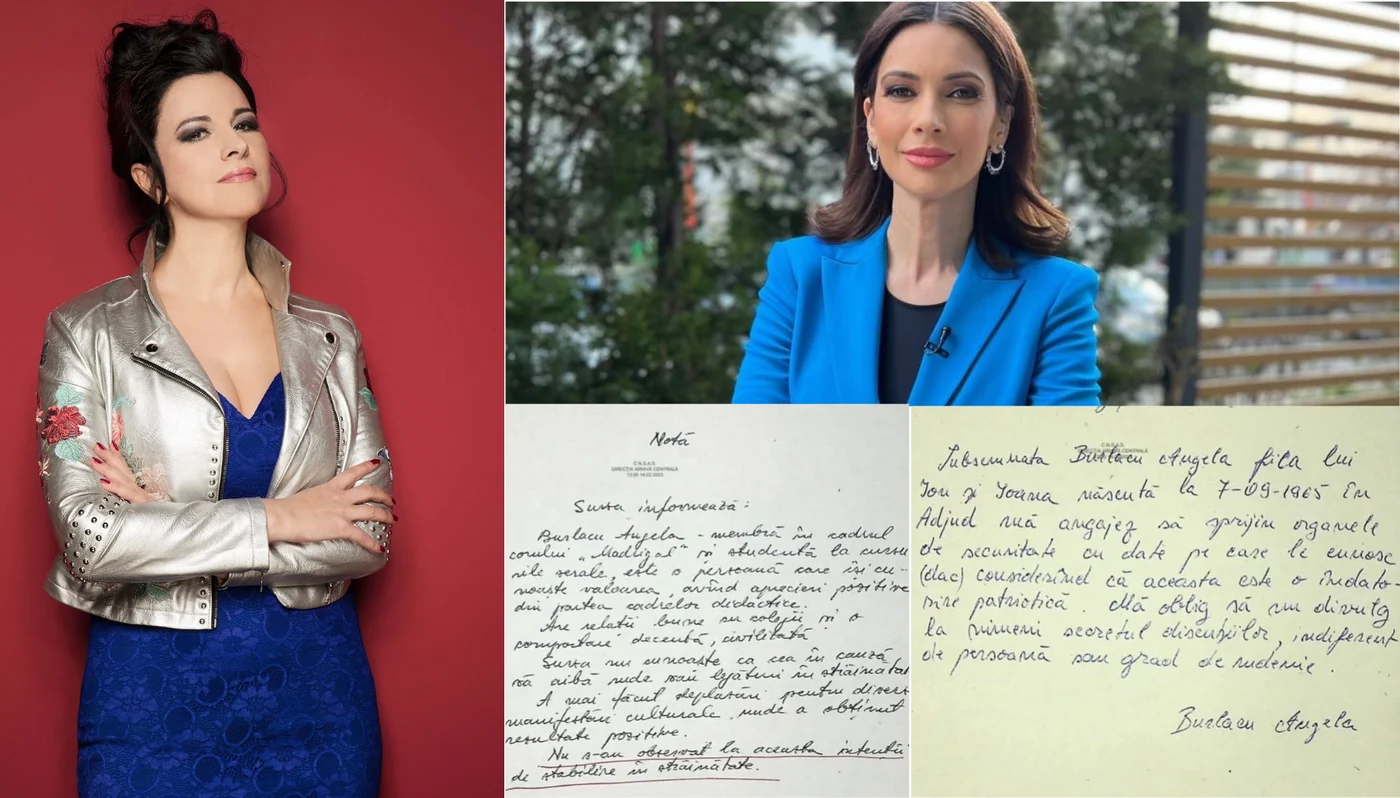 Notă
C.N.S.A.S.
DIRECȚIA ARHIVĂ CENTRALĂ
Sursa informează:
Burlacu Angela - membră în cadrul
corului "Madrigal" și studentă la cursu-
rile serale, este o persoană care își cu-
noaște valoarea, având aprecieri pozitive
din partea cadrelor didactice.
Are relații bune cu colegii și o
comportare decentă, civilitată
Sursa nu cunoaște ca cea în cauză
să aibă rude sau legături în străinătat
A mai făcut deplasări pentru divers
manifestări culturale, unde a obținut
rezultate pozitive.
Nu s-au observat la aceasta intenții
de stabilire în străinătate.
C.N.S.A.S.
DIRECȚIA ARHIVĂ CENTRALĂ
Subsemnata Burlacu Angela fiica lui
Ion și Ioana născută la 7-09-1965 în
Adjud mă angajez să sprijin organele
de securitate cu date pe care le cunosc
(dac) considerînd că aceasta este o îndato-
rire patriotică. Mă oblig să nu divulg
la nimeni secretul discuțiilor, indiferent
de persoană sau grad de rudenie.
Burlacu Angela